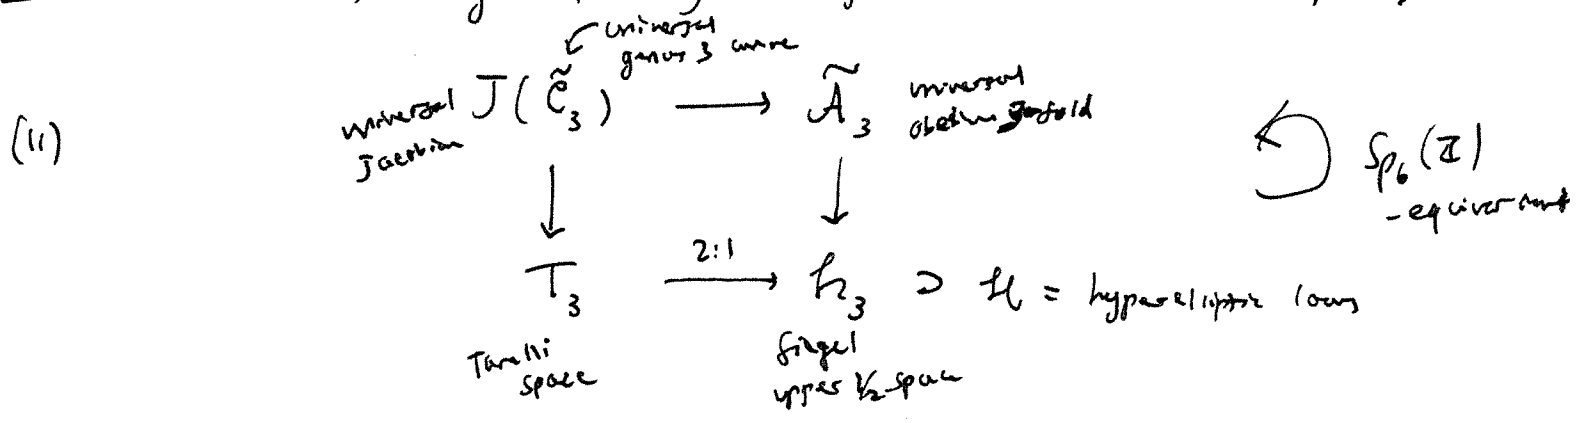 universal
genus 3 curve
universal J(C̃₃) ⟶ Ã₃ universal
Jacobian abelian 3-fold
(11)
Sp₆(ℤ)
-equivariant
2:1
T₃ ⟶ h₃ ⊃ H = hyperelliptic locus
Torelli
space
Siegel
upper 1/2 space